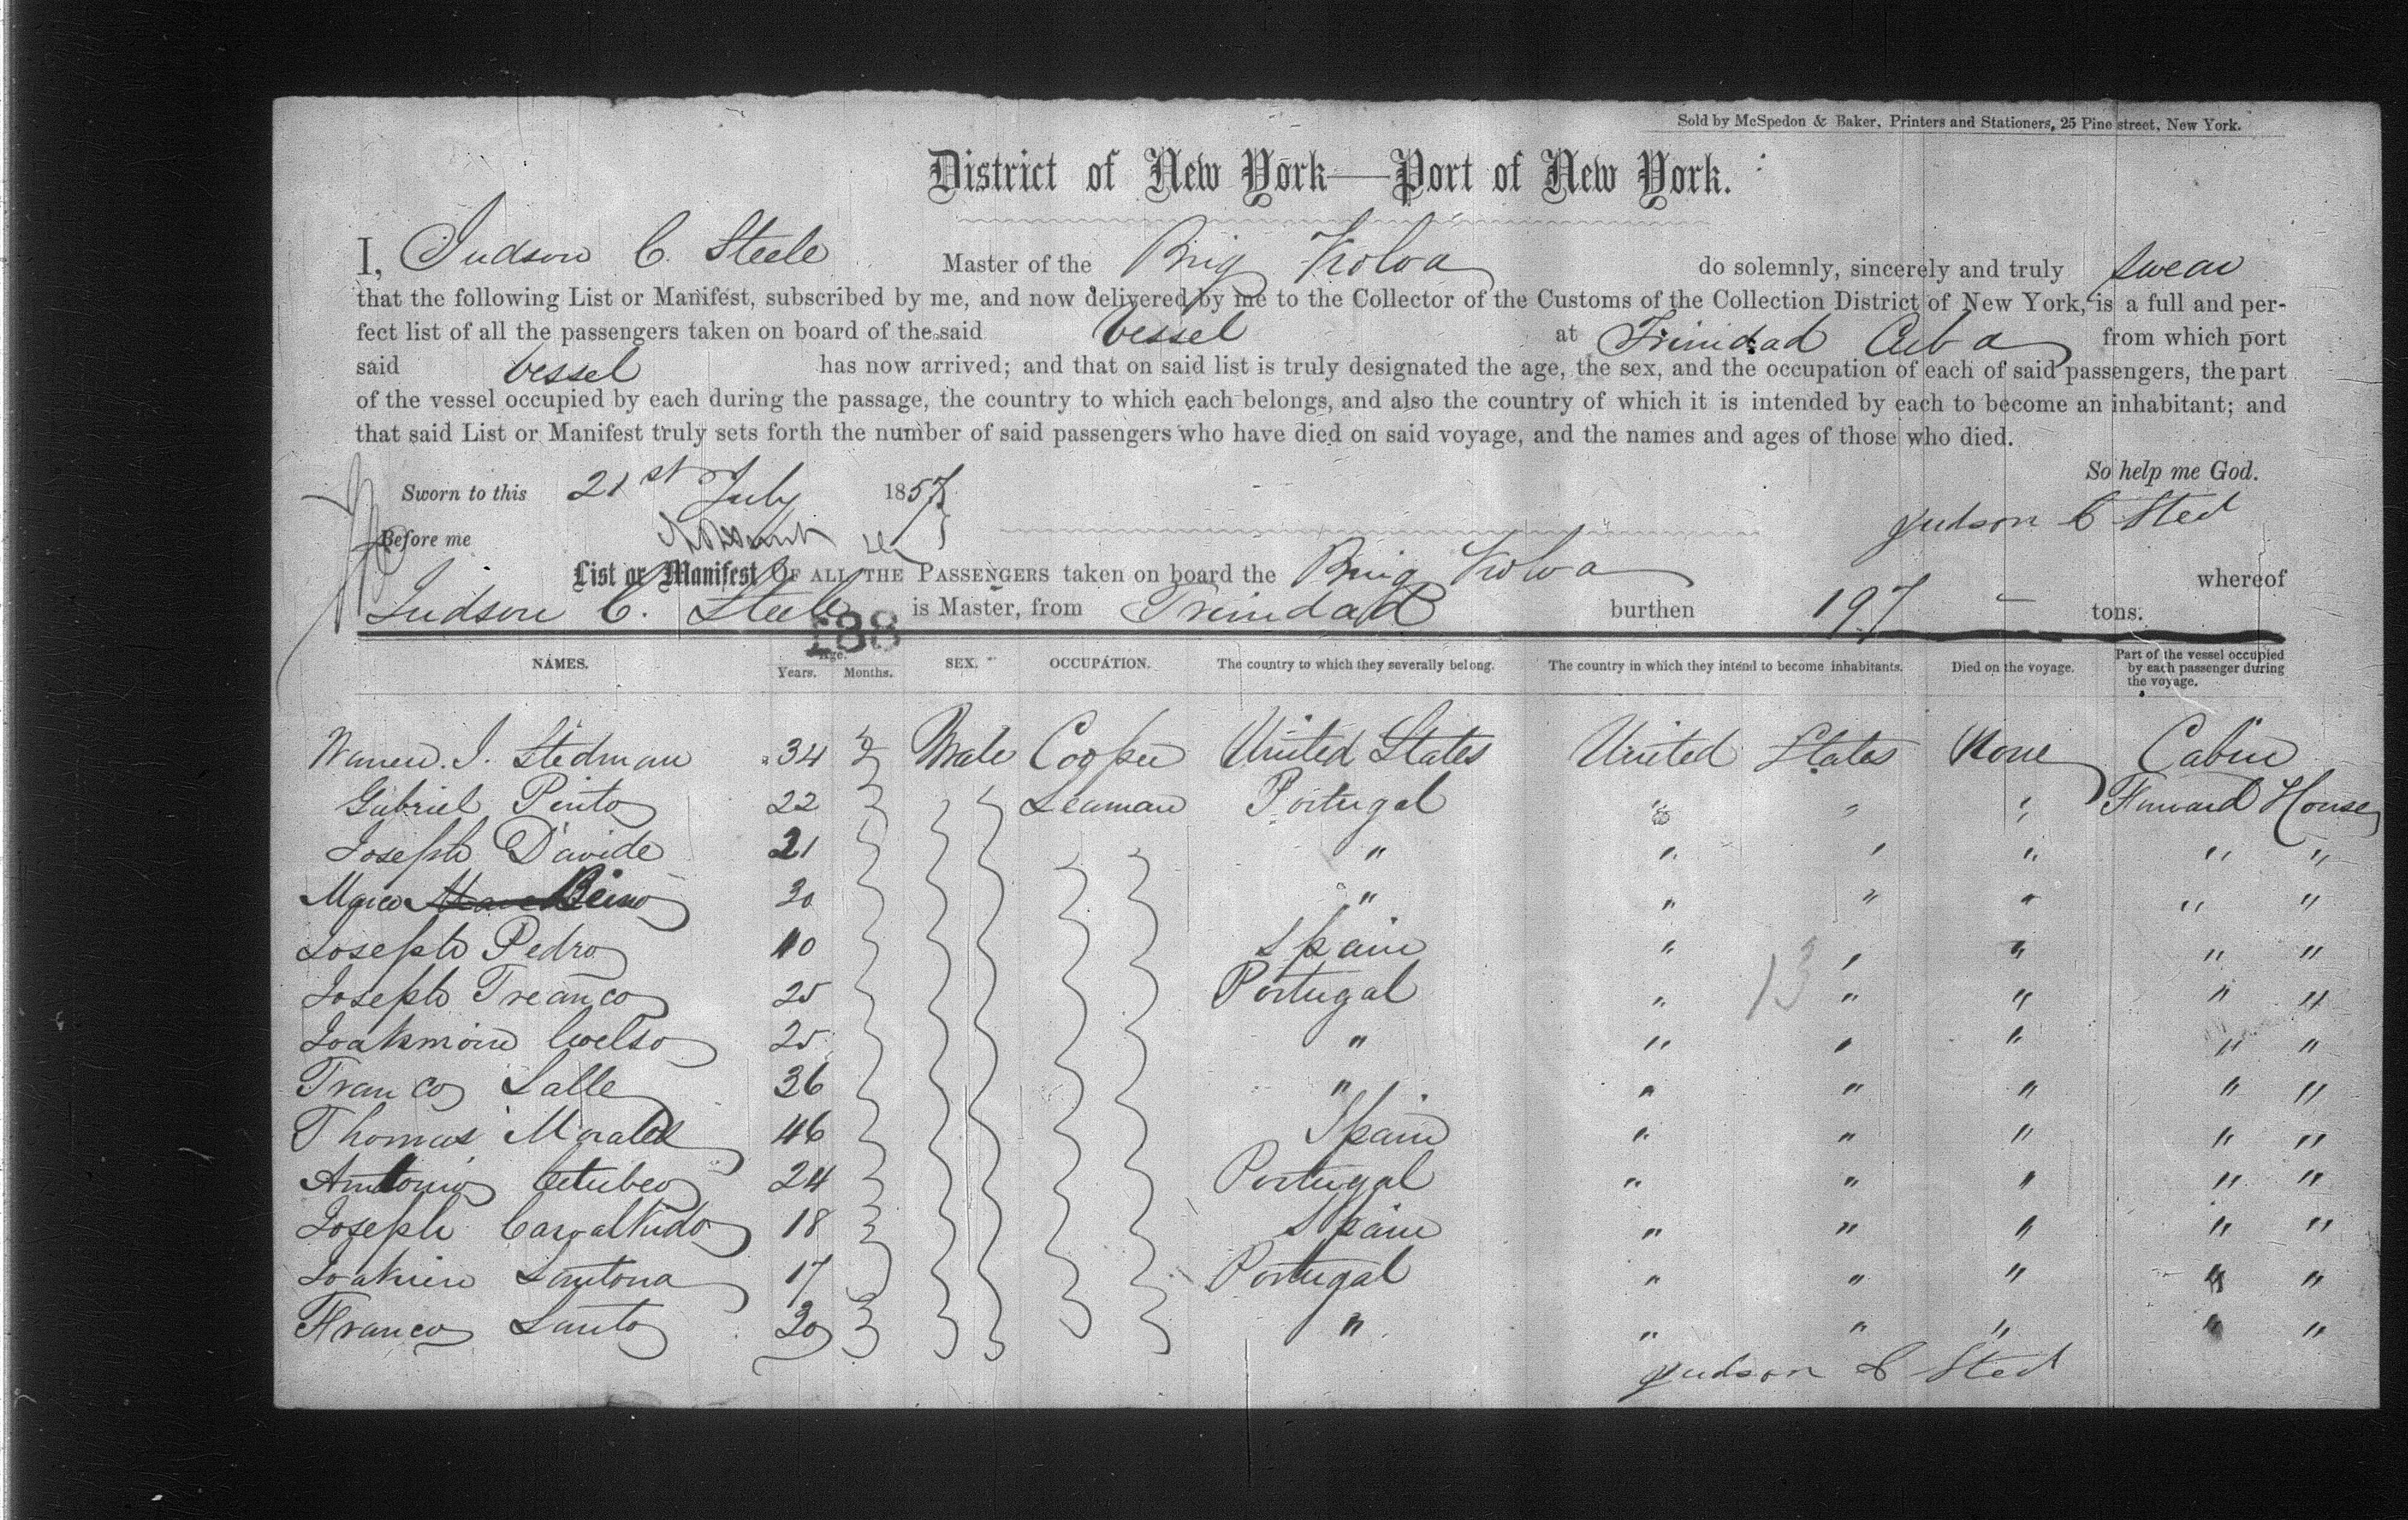 Sold by McSpedon & Baker, Printers and Stationers, 25 Pine street, New York.
District of New York—Port of New York.
I, Judson C. Steele Master of the Brig Koloa do solemnly, sincerely and truly swear
that the following List or Manifest, subscribed by me, and now delivered by me to the Collector of the Customs of the Collection District of New York, is a full and per-
fect list of all the passengers taken on board of the said vessel at Trinidad Cuba from which port
said vessel has now arrived; and that on said list is truly designated the age, the sex, and the occupation of each of said passengers, the part
of the vessel occupied by each during the passage, the country to which each belongs, and also the country of which it is intended by each to become an inhabitant; and
that said List or Manifest truly sets forth the number of said passengers who have died on said voyage, and the names and ages of those who died.
So help me God.
Sworn to this 21st July 1857
Judson C Steel
Before me
List or Manifest OF ALL THE PASSENGERS taken on board the Brig Koloa whereof
Judson C. Steele is Master, from Trinidad burthen 197 tons.
188
NAMES. Age. Years. Months. SEX. OCCUPATION. The country to which they severally belong. The country in which they intend to become inhabitants. Died on the voyage. Part of the vessel occupied by each passenger during the voyage.
Warren. I. Stedman 34 Male Cooper United States United States None Cabin
Gabriel Pinto 22 Seaman Portugal " " " Forward House
Joseph Davide 21 " " " " " "
Marco 30 " " " " " "
Joseph Pedro 10 Spain " " " " "
Joseph Treanco 25 Portugal " " " " "
13
25 " " " " " "
Franco Lalle 36 " " " " " "
Thomas Morales 46 Spain " " " " "
Antonio 24 Portugal " " " " "
Joseph 18 Spain " " " " "
Joakin Santona 17 Portugal " " " " "
Franco Santo 30 " " " " " "
Judson C Steel